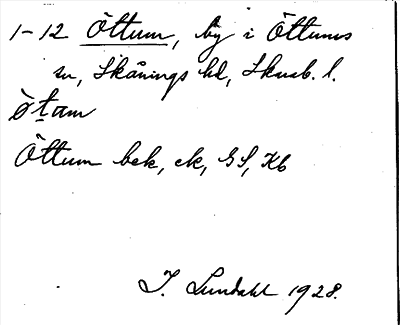 1-12 Öttum, by i Öttums
sn, Skånings hd, Skarab. l.
ö̀t̠am
Öttum bek, ek, GS, Kb
I. Lundahl 1928.